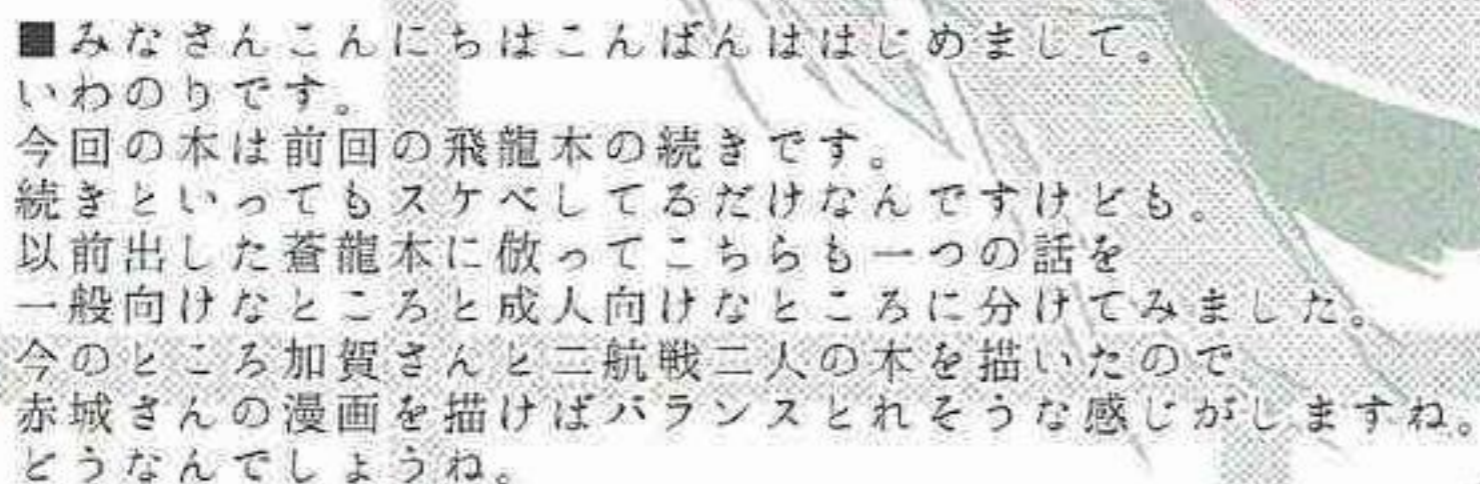 ■みなさんこんにちはこんばんははじめまして。
いわのりです。
今回の本は前回の飛龍本の続きです。
続きといってもスケベしてるだけなんですけども。
以前出した蒼龍本に倣ってこちらも一つの話を
一般向けなところと成人向けなところに分けてみました。
今のところ加賀さんと二航戦二人の本を描いたので
赤城さんの漫画を描けばバランスとれそうな感じがしますね。
どうなんでしょうね。